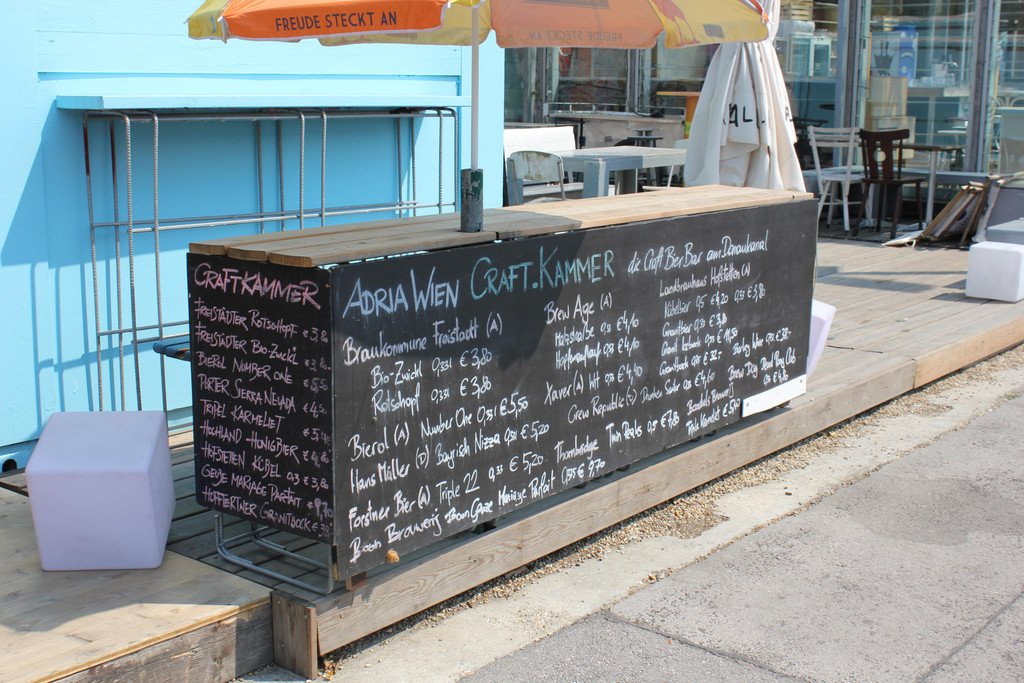 FREUDE STECKT AN
FREUDE STECKT AN
CRAFTKAMMER
FREISTÄDTER ROTSCHOPF € 3,8
FREISTÄDTER BIO-ZWICKL € 3,8
BIEROL NUMBER ONE € 5,5
PORTER SIERRA NEVADA € 4,5
TRIPEL KARMELIET € 5,4
HOCHLAND HONIGBIER € 4,8
HOFSTETTEN KÜBEL 0,3 € 3,8
GEUZE MARIAGE PARFAIT € 9,70
HOFSTETTNER GRANITBOCK € 3
ADRIA WIEN CRAFT.KAMMER die Craft Bier Bar am Donaukanal
Braukommune Freistadt (A)
Bio-Zwickl 0,33l € 3,80
Rotschopf 0,33l € 3,80
Bierol (A) Number One 0,33l € 5,50
Hans Müller (D) Bayrisch Nizza 0,33l € 5,20
Forstner Bier (A) Triple 22 0,33 € 5,20
Boon Brouwerij Boon Geuze Mariage Parfait 0,375 € 9,70
Brew Age (A)
Malzstraße 0,33 € 4,10
Hopfenauflauf 0,33 € 4,10
Xaver (A) Wit 0,33 € 4,40
Crew Republic (D) Drunken Sailor 0,33 € 4,60
Thornbridge Twin Peaks 0,5 € 7,80
Landbrauhaus Hofstetten (A)
Kübelbier 0,5 € 4,20 0,33 € 3,80
Granitbier 0,33 € 3,8
Brew Dog Dead Pony Club
0,33 € 4,8
€ 5,40